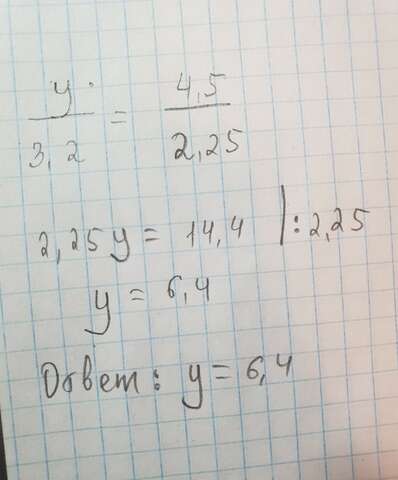 y/3,2 = 4,5/2,25
2,25y = 14,4 |:2,25
y = 6,4
Ответ: y = 6,4